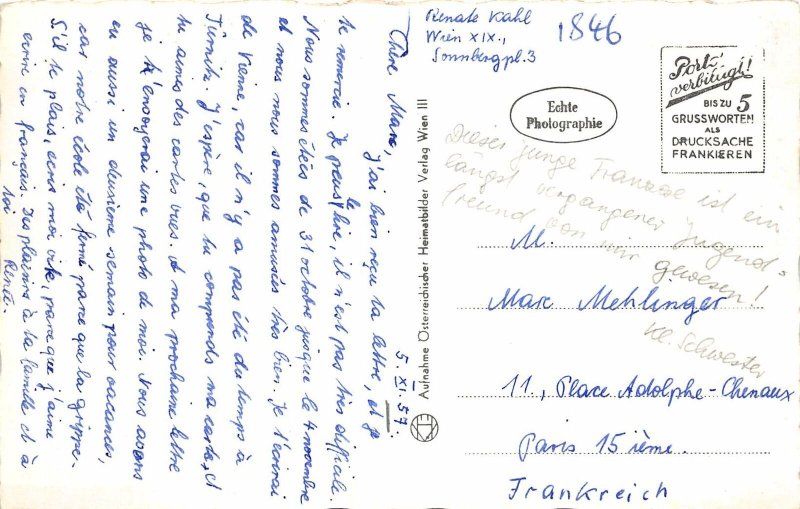 Renate Kahl
Wien XIX.,
Sonnbergpl. 3
1846
Echte
Photographie
Portover­billigt!
BIS ZU 5
GRUSSWORTEN
ALS
DRUCKSACHE
FRANKIEREN
Dieser junge Franzose ist ein
längst vergangener Jugend-
freund von mir gewesen!
kl. Schwester
M.
Marc Mehlinger
11, Place Adolphe-Chenaux
Paris 15ième.
Frankreich
Aufnahme Österreichischer Heimatbilder Verlag Wien III
5. XI. 57.
Chère Marc,
j'ai bien reçu ta lettre, et je
te remercie. Je peux le lire, il n'est pas très difficile.
Nous sommes étées de 31 octobre jusque le 4 novembre
et nous nous sommes amusés très bien. Je t'écrirai
de Vienne, car il n'y a pas été du temps à
Türnitz. J'espère, que tu comprends ma carte, et
tu aimes des cartes vues. A ma prochaine lettre
je t'envoyerai une photo de moi. Nous avons
eu aussi un deuxième semain pour vacances,
car notre école été fermé parce que la grippe.
S'il te plais, écris moi vite, parce que j'aime
écrire en français. Des plaisirs à ta famille et à
toi
Renate.